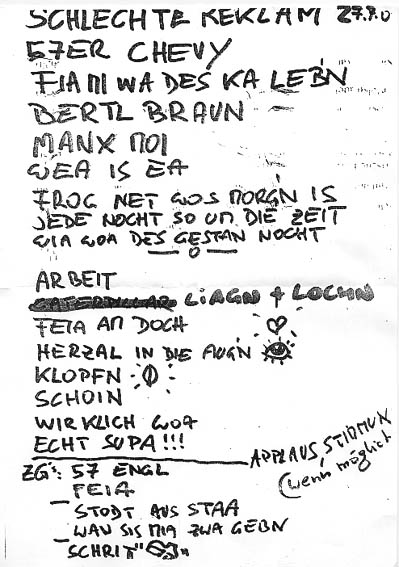 SCHLECHTE REKLAM 27.9.0
57ER CHEVY
FIA MI WA DES KA LEB'N
BERTL BRAUN
MANX MOI
WEA IS EA
FROG NET WOS MORG'N IS
JEDE NOCHT SO UM DIE ZEIT
WIA WOA DES GESTAN NOCHT
ARBEIT
LIAGN + LOCHN
FEIA AM DOCH
HERZAL IN DIE AUG'N
KLOPFN
SCHOIN
WIRKLICH WOA
ECHT SUPA!!!
APPLAUS, STIMMUN
(wenn möglich
ZG: 57 ENGL
FEIA
STODT AUS STAA
WAU SIS MIA ZWA GEBN
"SCHRIT"